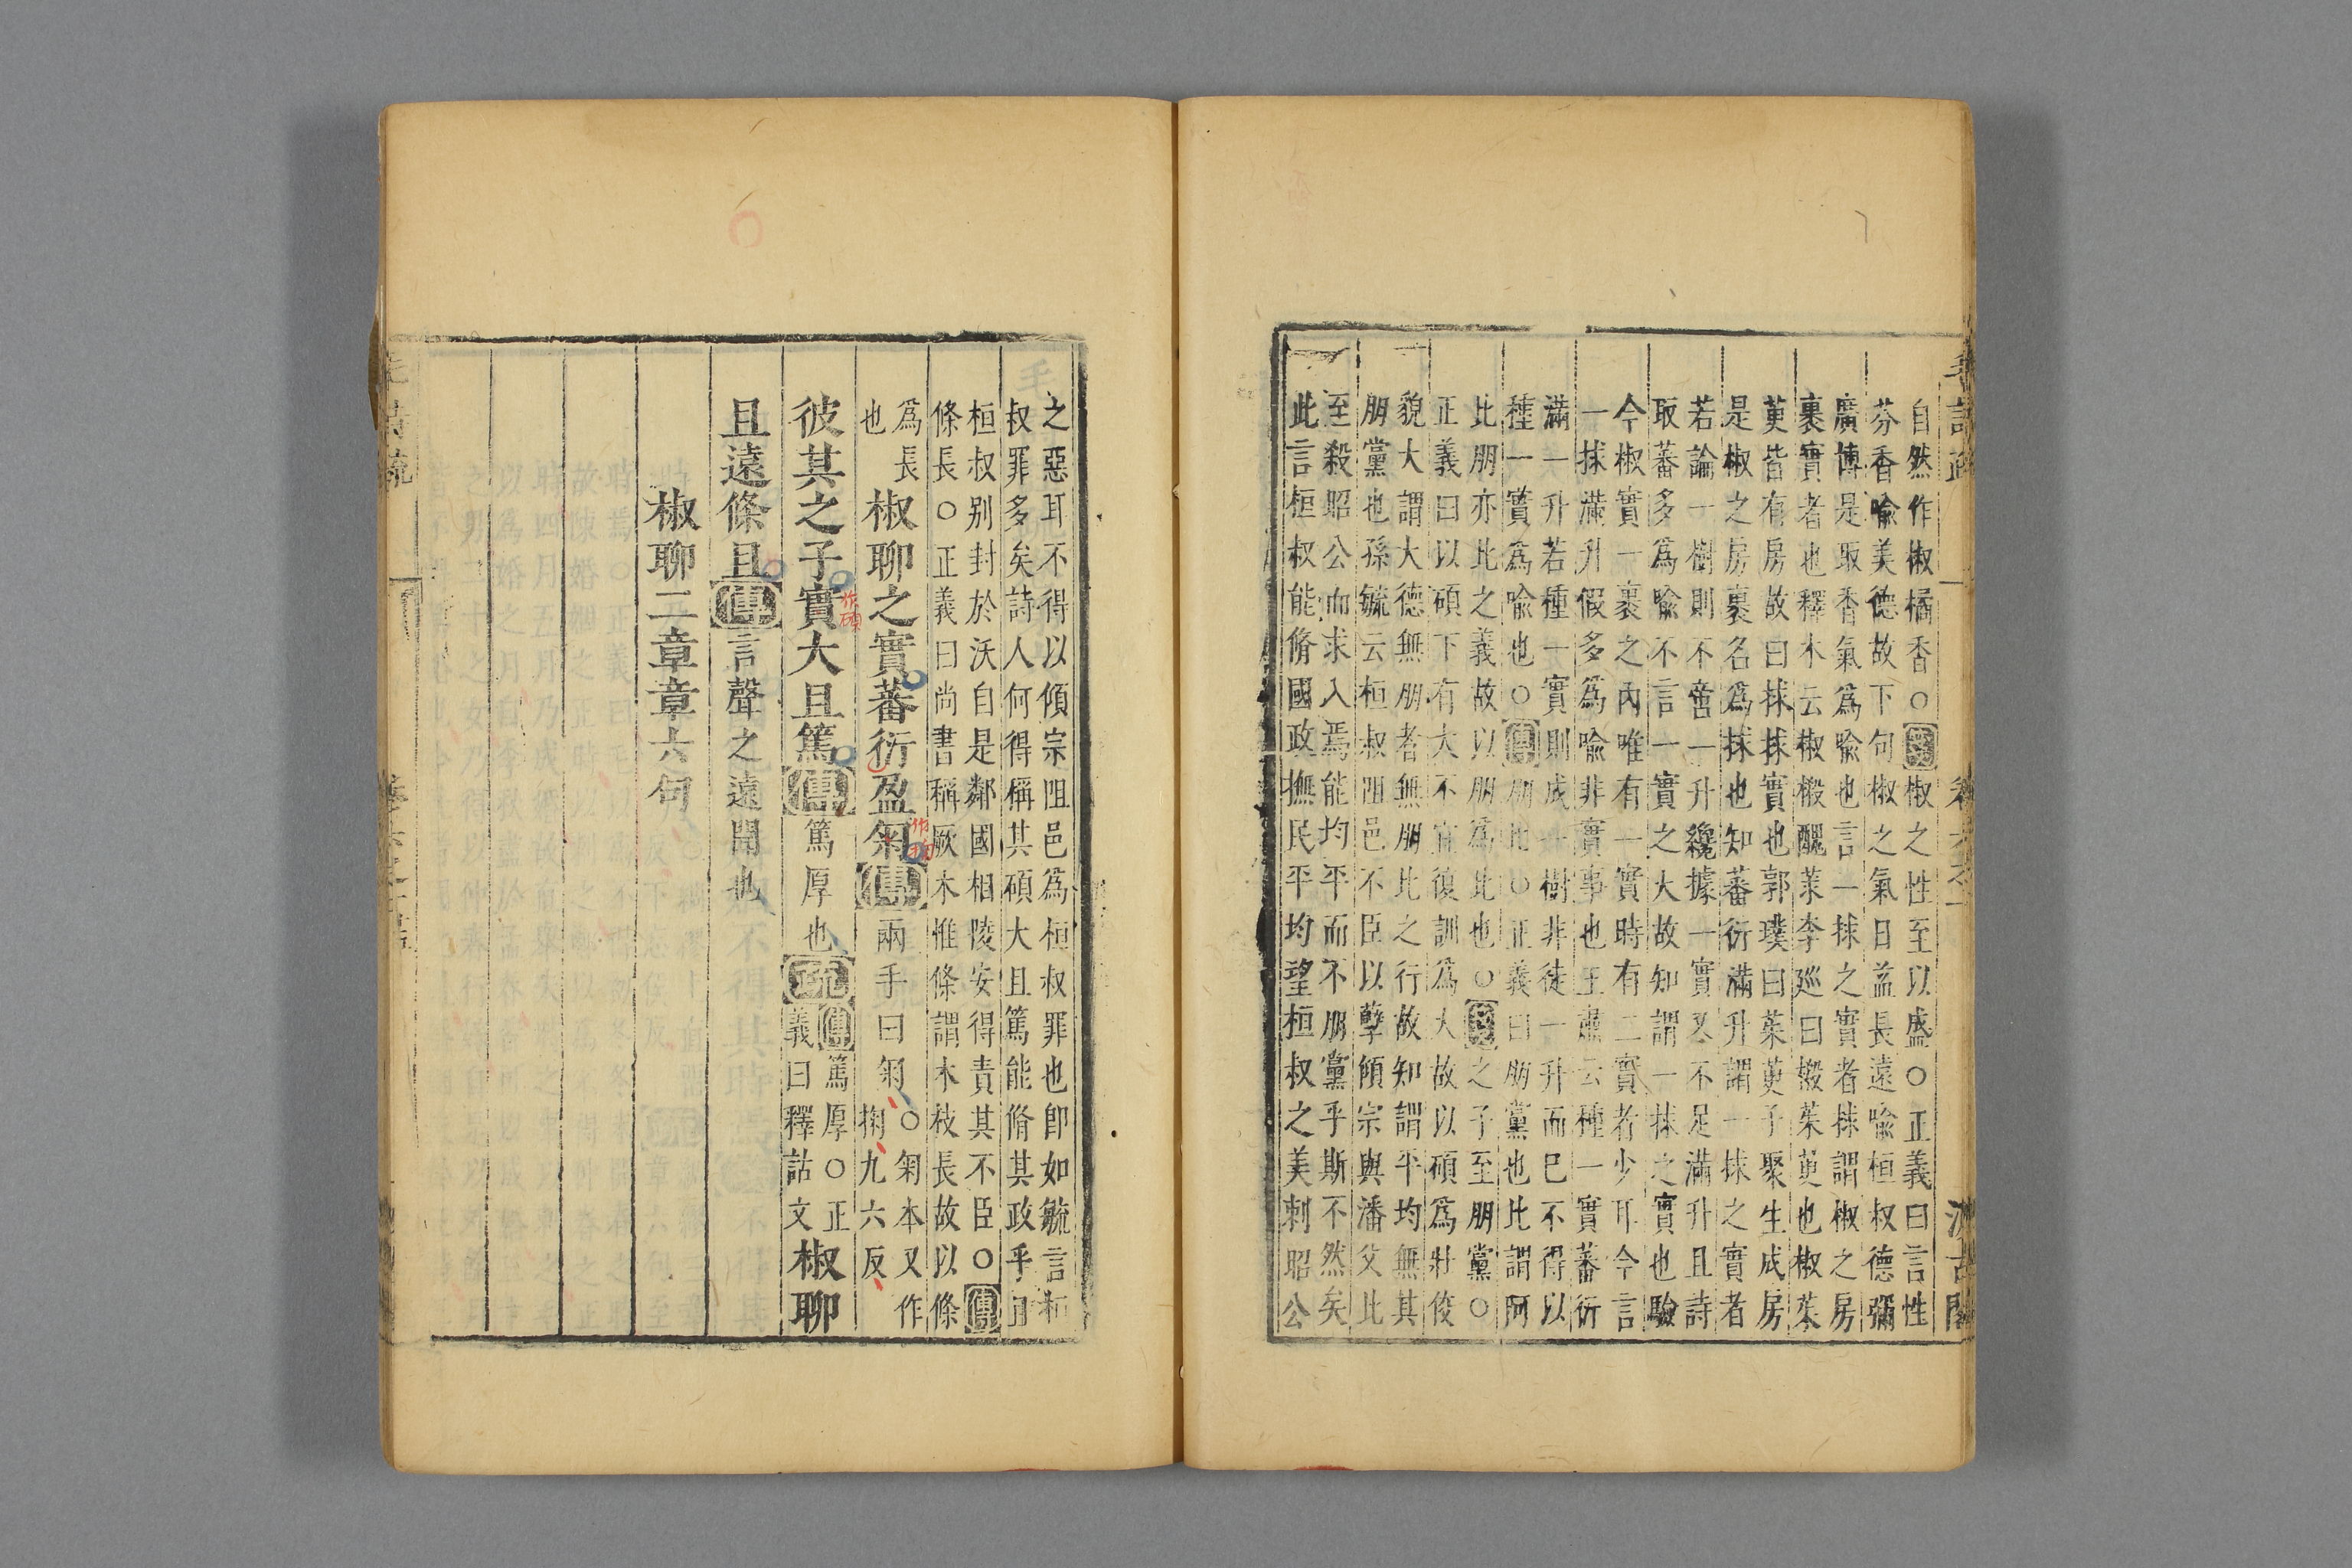 毛詩疏
卷六之二
汲古閣
自然作椒橘香○箋椒之性至以盛○正義曰言性
芬香喻美德故下句椒之氣日益長遠喻桓叔德彌
廣博是取香氣爲喻也言一捄之實者捄謂椒之房
裹實者也釋木云椒榝醜莍李巡曰榝茱萸也椒茱
萸皆有房故曰捄捄實也郭璞曰茱萸子聚生成房
是椒之房裹名爲捄也知蕃衍滿升謂一捄之實者
若論一樹則不啻一升纔據一實又不足滿升且詩
取蕃多爲喻不言一實之大故知謂一捄之實也驗
今椒實一裹之內唯有一實時有二實者少耳今言
一捄滿升假多爲喻非實事也王肅云種一實蕃衍
滿一升若種一實則成一樹非徒一升而已不得以
種一實爲喻也○傳朋比○正義曰朋黨也比謂阿
比朋亦比之義故以朋爲比也○箋之子至朋黨○
正義曰以碩下有大不宜復訓爲大故以碩爲壯佼
貌大謂大德無朋者無朋比之行故知謂平均無其
朋黨也孫毓云桓叔阻邑不臣以孽傾宗與潘父比
至殺昭公而求入焉能均平而不朋黨乎斯不然矣
此言桓叔能脩國政撫民平均望桓叔之美刺昭公
之惡耳不得以傾宗阻邑爲桓叔罪也卽如毓言桓
叔罪多矣詩人何得稱其碩大且篤能脩其政乎且
桓叔別封於沃自是鄰國相陵安得責其不臣○傳
條長○正義曰尚書稱厥木惟條謂木枝長故以條
爲長
也
椒聊之實蕃衍盈匊傳兩手曰匊○匊本又作
掬九六反
作掬
彼其之子實大且篤傳篤厚也疏傳篤厚○正
義曰釋詁文
椒聊
作碩
且遠條且傳言聲之遠聞也
椒聊二章章六句
毛詩疏